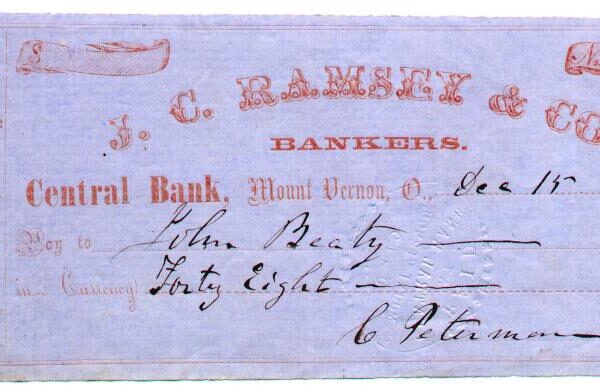 $
J. C. RAMSEY & CO
BANKERS.
Central Bank, Mount Vernon, O., Dec 15
Pay to John Beaty
in Currency Forty Eight
C Peterman